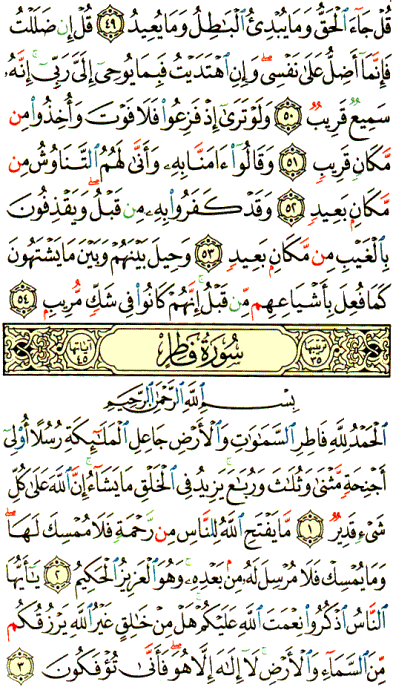 قُلْ جَآءَ ٱلْحَقُّ وَمَا يُبْدِئُ ٱلْبَٰطِلُ وَمَا يُعِيدُ ٤٩ قُلْ إِن ضَلَلْتُ
فَإِنَّمَآ أَضِلُّ عَلَىٰ نَفْسِى ۖ وَإِنِ ٱهْتَدَيْتُ فَبِمَا يُوحِىٓ إِلَىَّ رَبِّىٓ ۚ إِنَّهُۥ
سَمِيعٌ قَرِيبٌ ٥٠ وَلَوْ تَرَىٰٓ إِذْ فَزِعُوا۟ فَلَا فَوْتَ وَأُخِذُوا۟ مِن
مَّكَانٍ قَرِيبٍ ٥١ وَقَالُوٓا۟ ءَامَنَّا بِهِۦ وَأَنَّىٰ لَهُمُ ٱلتَّنَاوُشُ مِن
مَّكَانٍۭ بَعِيدٍ ٥٢ وَقَدْ كَفَرُوا۟ بِهِۦ مِن قَبْلُ ۖ وَيَقْذِفُونَ
بِٱلْغَيْبِ مِن مَّكَانٍۭ بَعِيدٍ ٥٣ وَحِيلَ بَيْنَهُمْ وَبَيْنَ مَا يَشْتَهُونَ
كَمَا فُعِلَ بِأَشْيَاعِهِم مِّن قَبْلُ ۚ إِنَّهُمْ كَانُوا۟ فِى شَكٍّ مُّرِيبٍۭ ٥٤
ترتيبها ٣٥ سُورَةُ فَاطِرٍ آياتها ٤٥
بِسْمِ ٱللَّهِ ٱلرَّحْمَٰنِ ٱلرَّحِيمِ
ٱلْحَمْدُ لِلَّهِ فَاطِرِ ٱلسَّمَٰوَٰتِ وَٱلْأَرْضِ جَاعِلِ ٱلْمَلَٰٓئِكَةِ رُسُلًا أُو۟لِىٓ
أَجْنِحَةٍ مَّثْنَىٰ وَثُلَٰثَ وَرُبَٰعَ ۚ يَزِيدُ فِى ٱلْخَلْقِ مَا يَشَآءُ ۚ إِنَّ ٱللَّهَ عَلَىٰ كُلِّ
شَىْءٍ قَدِيرٌ ١ مَّا يَفْتَحِ ٱللَّهُ لِلنَّاسِ مِن رَّحْمَةٍ فَلَا مُمْسِكَ لَهَا ۖ
وَمَا يُمْسِكْ فَلَا مُرْسِلَ لَهُۥ مِنۢ بَعْدِهِۦ ۚ وَهُوَ ٱلْعَزِيزُ ٱلْحَكِيمُ ٢ يَٰٓأَيُّهَا
ٱلنَّاسُ ٱذْكُرُوا۟ نِعْمَتَ ٱللَّهِ عَلَيْكُمْ ۚ هَلْ مِنْ خَٰلِقٍ غَيْرُ ٱللَّهِ يَرْزُقُكُم
مِّنَ ٱلسَّمَآءِ وَٱلْأَرْضِ ۚ لَآ إِلَٰهَ إِلَّا هُوَ ۖ فَأَنَّىٰ تُؤْفَكُونَ ٣